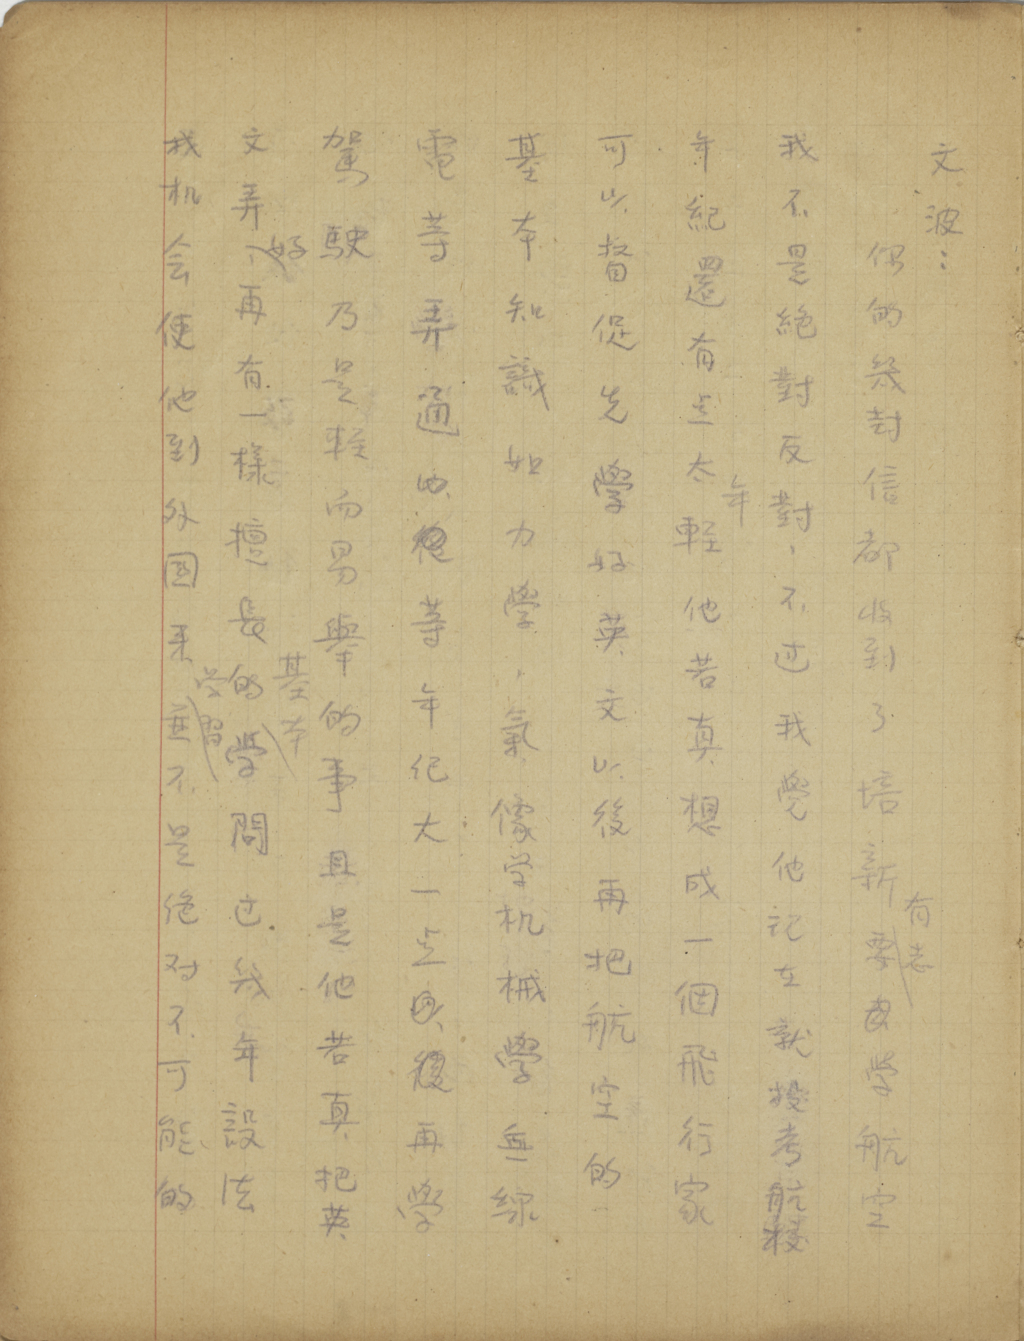 文波：
你的幾封信都收到了培新有志要去學航空
我不是絕對反對，不过我覺他記在就投考航校
年紀還有点太年輕他若真想成一個飛行家
可以督促先學好英文以後再把航空的
基本知識如力學，氣像学机械學無線
電等弄通以後等年纪大一点以後再學
駕駛乃是輕而易舉的事且是他若真把英
文弄好，再有一樣擅長的基本學問过幾年設法
找机会使他到外国来学習並不是绝对不可能的